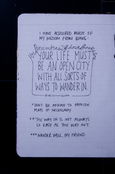 I HAVE ACQUIRED MUCH OF
MY WISDOM FROM BOOKS
YOUR LIFE MUST
BE AN OPEN CITY
WITH ALL SORTS OF
WAYS TO WANDER IN.
* DON'T BE AFRAID TO
MAPS IF NECESSARY
** THE WAY IN IS NOT ALWAYS
AS EASY AS THE WAY OUT
*** WANDER WELL, MY FRIEND